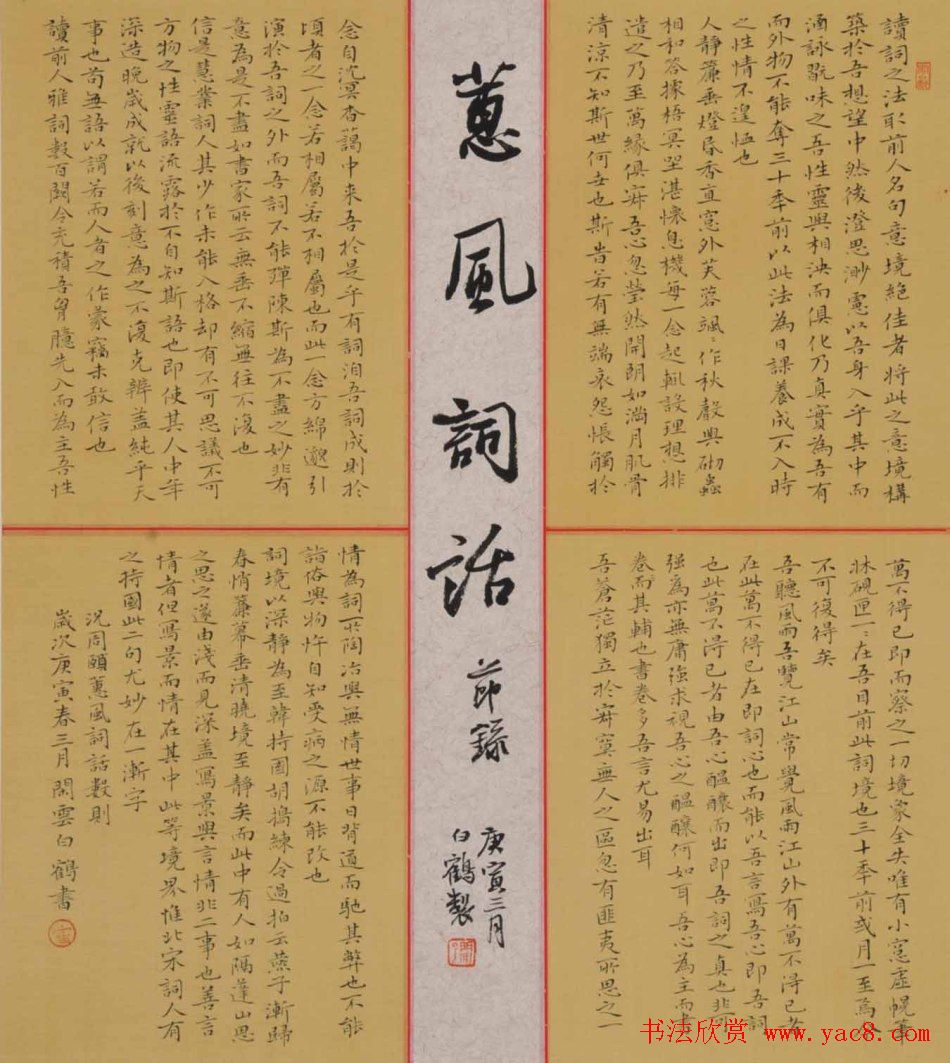 蕙風詞話
節錄
庚寅三月
白鶴製
讀詞之法取前人名句意境絕佳者將此之意境構
築於吾想望中然後澄思渺慮以吾身入乎其中而
涵詠翫味之吾性靈與相浹而俱化乃真實為吾有
而外物不能奪三十季前以此法為日課養成不入時
之性情不遑恤也
人靜簾垂燈昏香直窻外芙蓉颯〻作秋聲與砌蟲
相和答據梧冥坐湛懷息機每一念起輒設理想排
遣之乃至萬緣俱寂吾心忽瑩然開朗如滿月肌骨
清涼不知斯世何世也斯時若有無端哀怨悵觸於
萬不得已即而察之一切境象全失唯有小窻虛幌筆
牀硯匣一一在吾目前此詞境也三十季前或月一至焉今
不可復得矣
吾聽風雨吾覽江山常覺風雨江山外有萬不得已者
在此萬不得已者即詞心也而能以吾言寫吾心即吾詞
也此萬不得已者由吾心醞釀而出即吾詞之真也非可
強為亦無庸強求視吾心之醞釀何如耳吾心為主而書
卷而其輔也書卷多吾言尤易出耳
吾蒼茫獨立於寂寞無人之區忽有匪夷所思之一
念自沈冥杳靄中来吾於是乎有詞洎吾詞成則於
頃者之一念若相屬若不相屬也而此一念方綿邈引
演於吾詞之外而吾詞不能殫陳斯為不盡之妙非有
意為是不盡如書家所云無垂不縮無往不復也
信是慧業詞人其少作未能入格却有不可思議不可
方物之性靈語流露於不自知斯語也即使其人中年
深造晚歲成就以後刻意為之不復克辦蓋純乎天
事也苟無語以謂若而人者之作蒙竊未敢信也
讀前人雅詞數百闋令充積吾胷臆先入而為主吾性
情為詞所陶冶與無情世事日背道而馳其弊也不能
諧俗與物忤自知受病之源不能改也
詞境以深靜為至韓持國胡擣練令過拍云燕子漸歸
春悄簾幕垂清曉境至靜矣而此中有人如隔蓬山思
之思之遂由淺而見深蓋寫景與言情非二事也善言
情者但寫景而情在其中此等境界惟北宋詞人有
之持國此二句尤妙在一漸字
況周頤蕙風詞話數則
歲次庚寅春三月閑雲白鶴書
书法欣赏 www.yac8.com